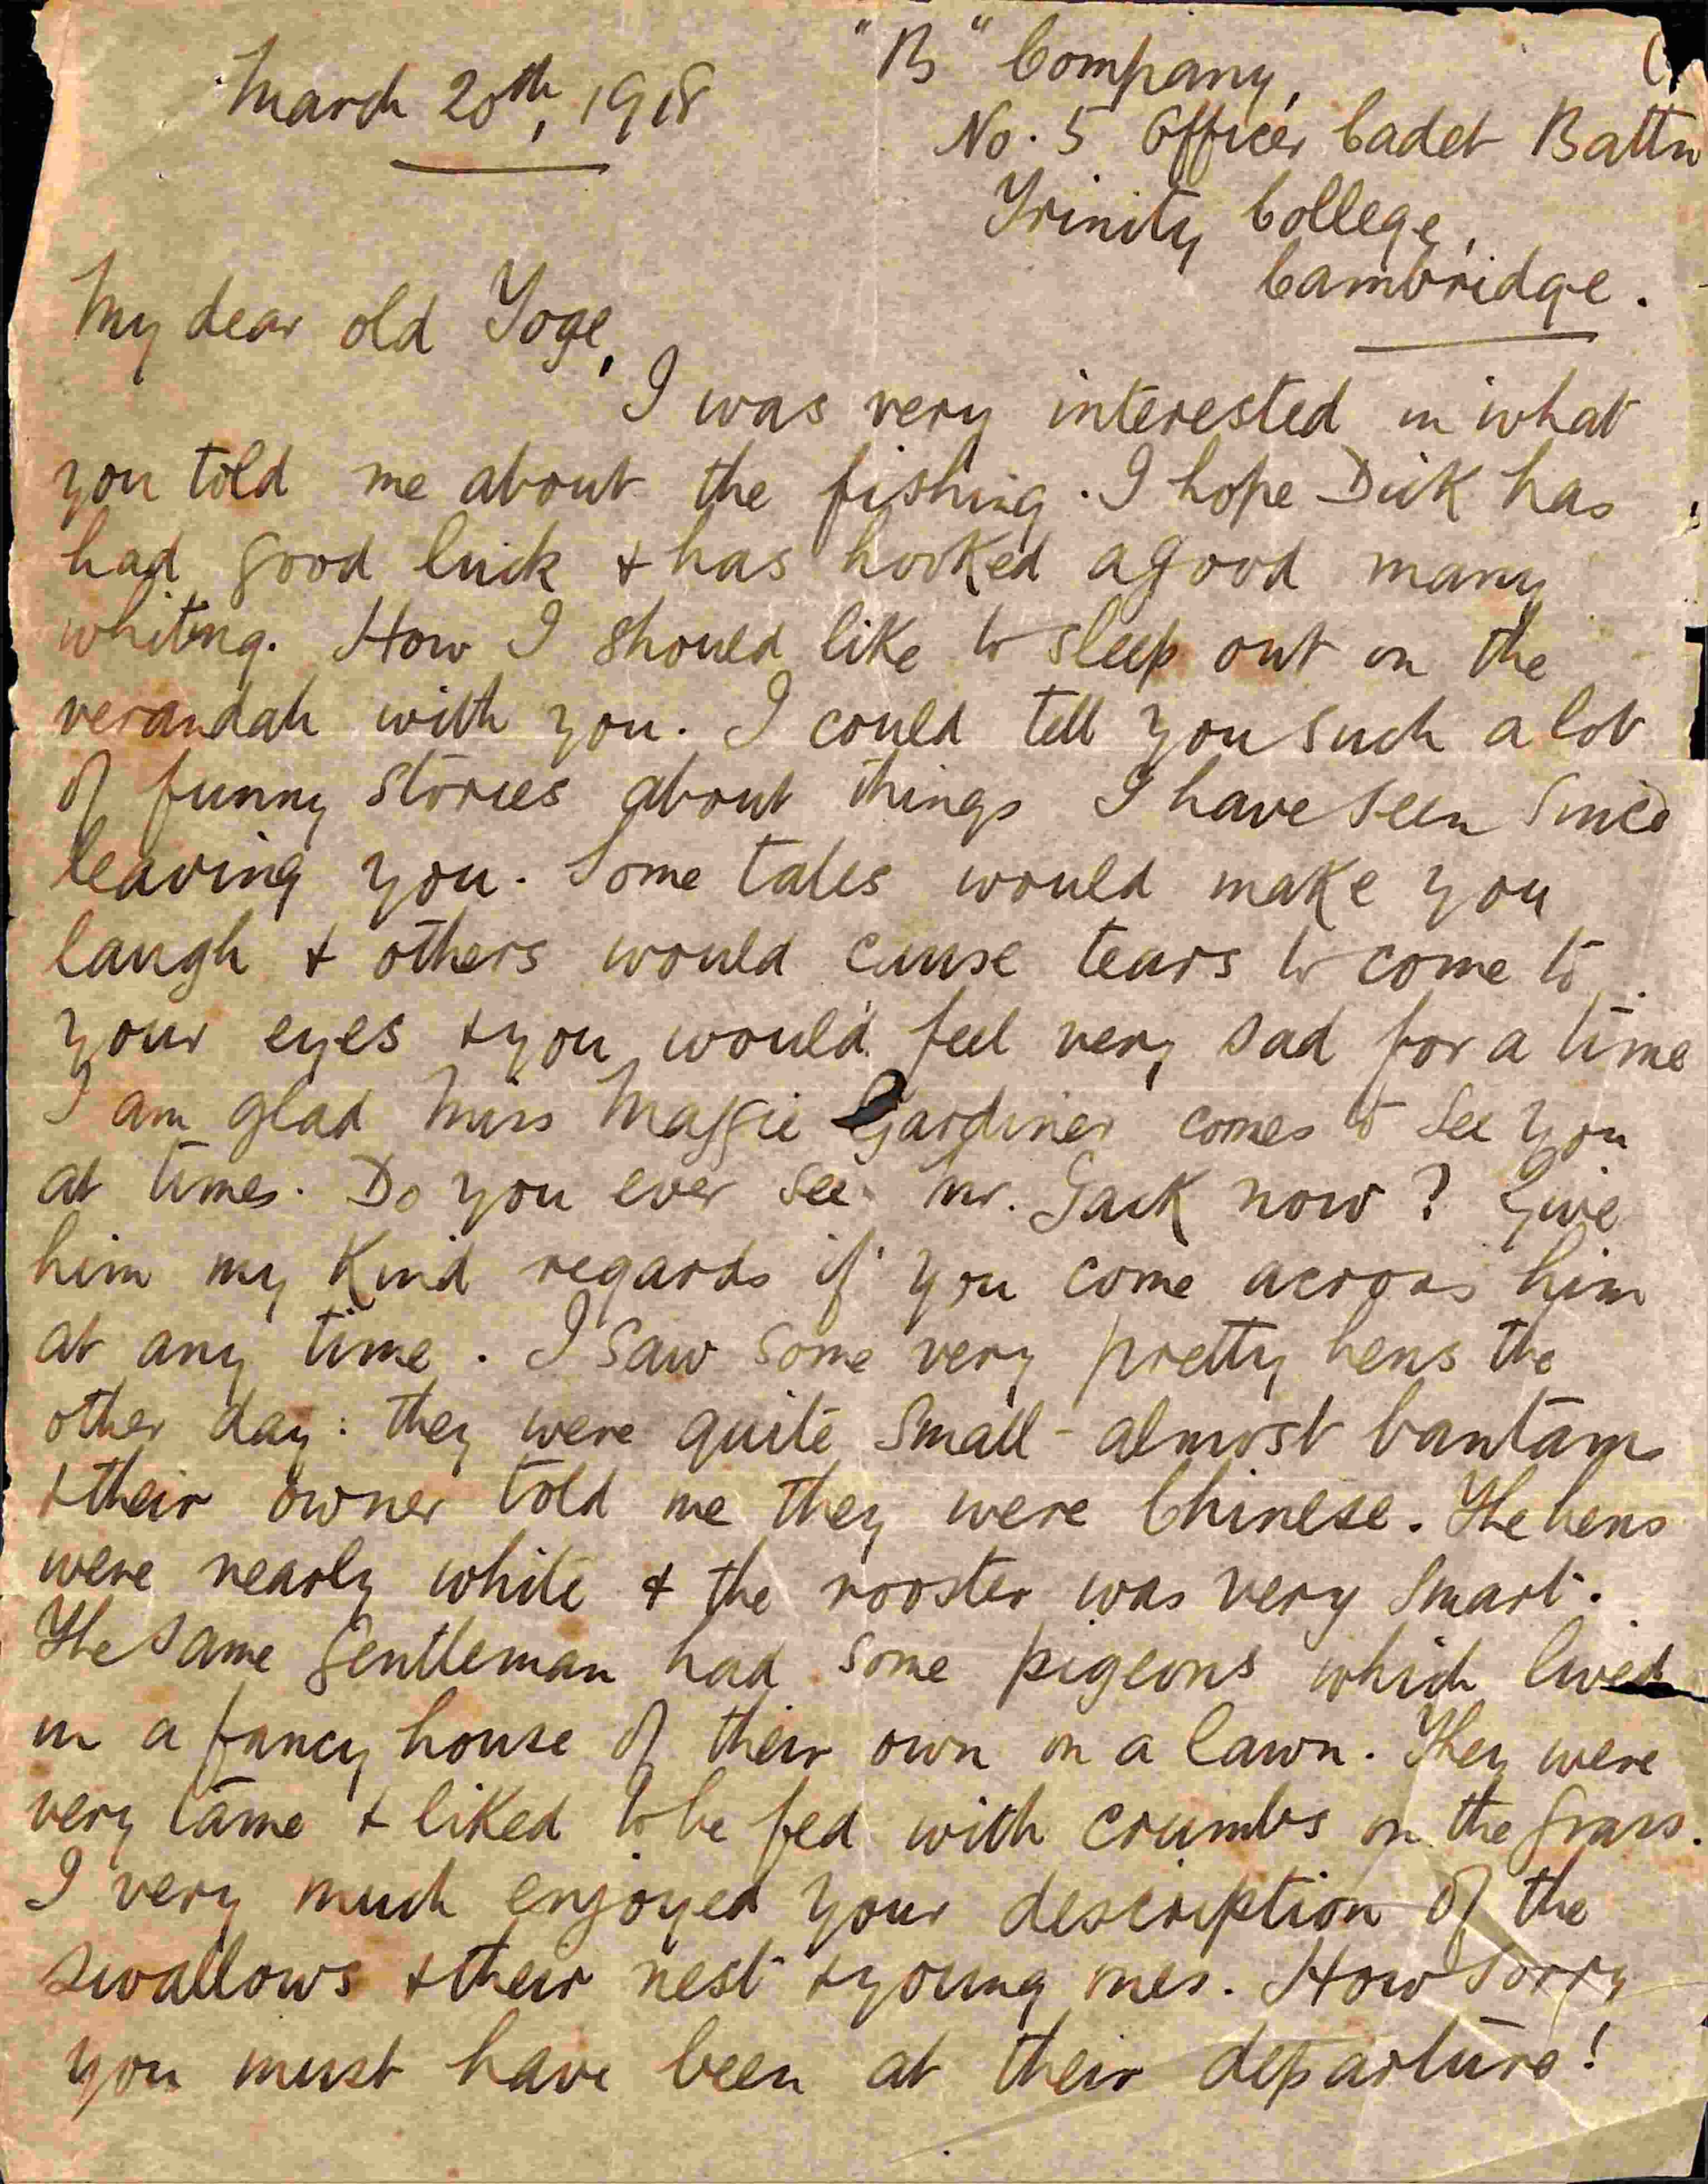 March 20th, 1918
"B" Company,
No. 5 Officer Cadet Battn
Trinity College,
Cambridge.
My dear old Toge,
I was very interested in what
you told me about the fishing. I hope Dick has
had good luck & has hooked a good many
whiting. How I should like to sleep out on the
verandah with you. I could tell you such a lot
of funny stories about things I have seen since
leaving you. Some tales would make you
laugh & others would cause tears to come to
your eyes & you would feel very sad for a time
I am glad Miss Maggie Gardiner comes to see you
at times. Do you ever see Mr. Jack now? Give
him my kind regards if you come across him
at any time. I saw some very pretty hens the
other day: they were quite small - almost bantams
& their owner told me they were Chinese. The hens
were nearly white & the rooster was very smart.
The same gentleman had some pigeons which lived
in a fancy house of their own on a lawn. They were
very tame & liked to be fed with crumbs on the grass.
I very much enjoyed your description of the
swallows & their nest & young ones. How sorry
you must have been at their departure!